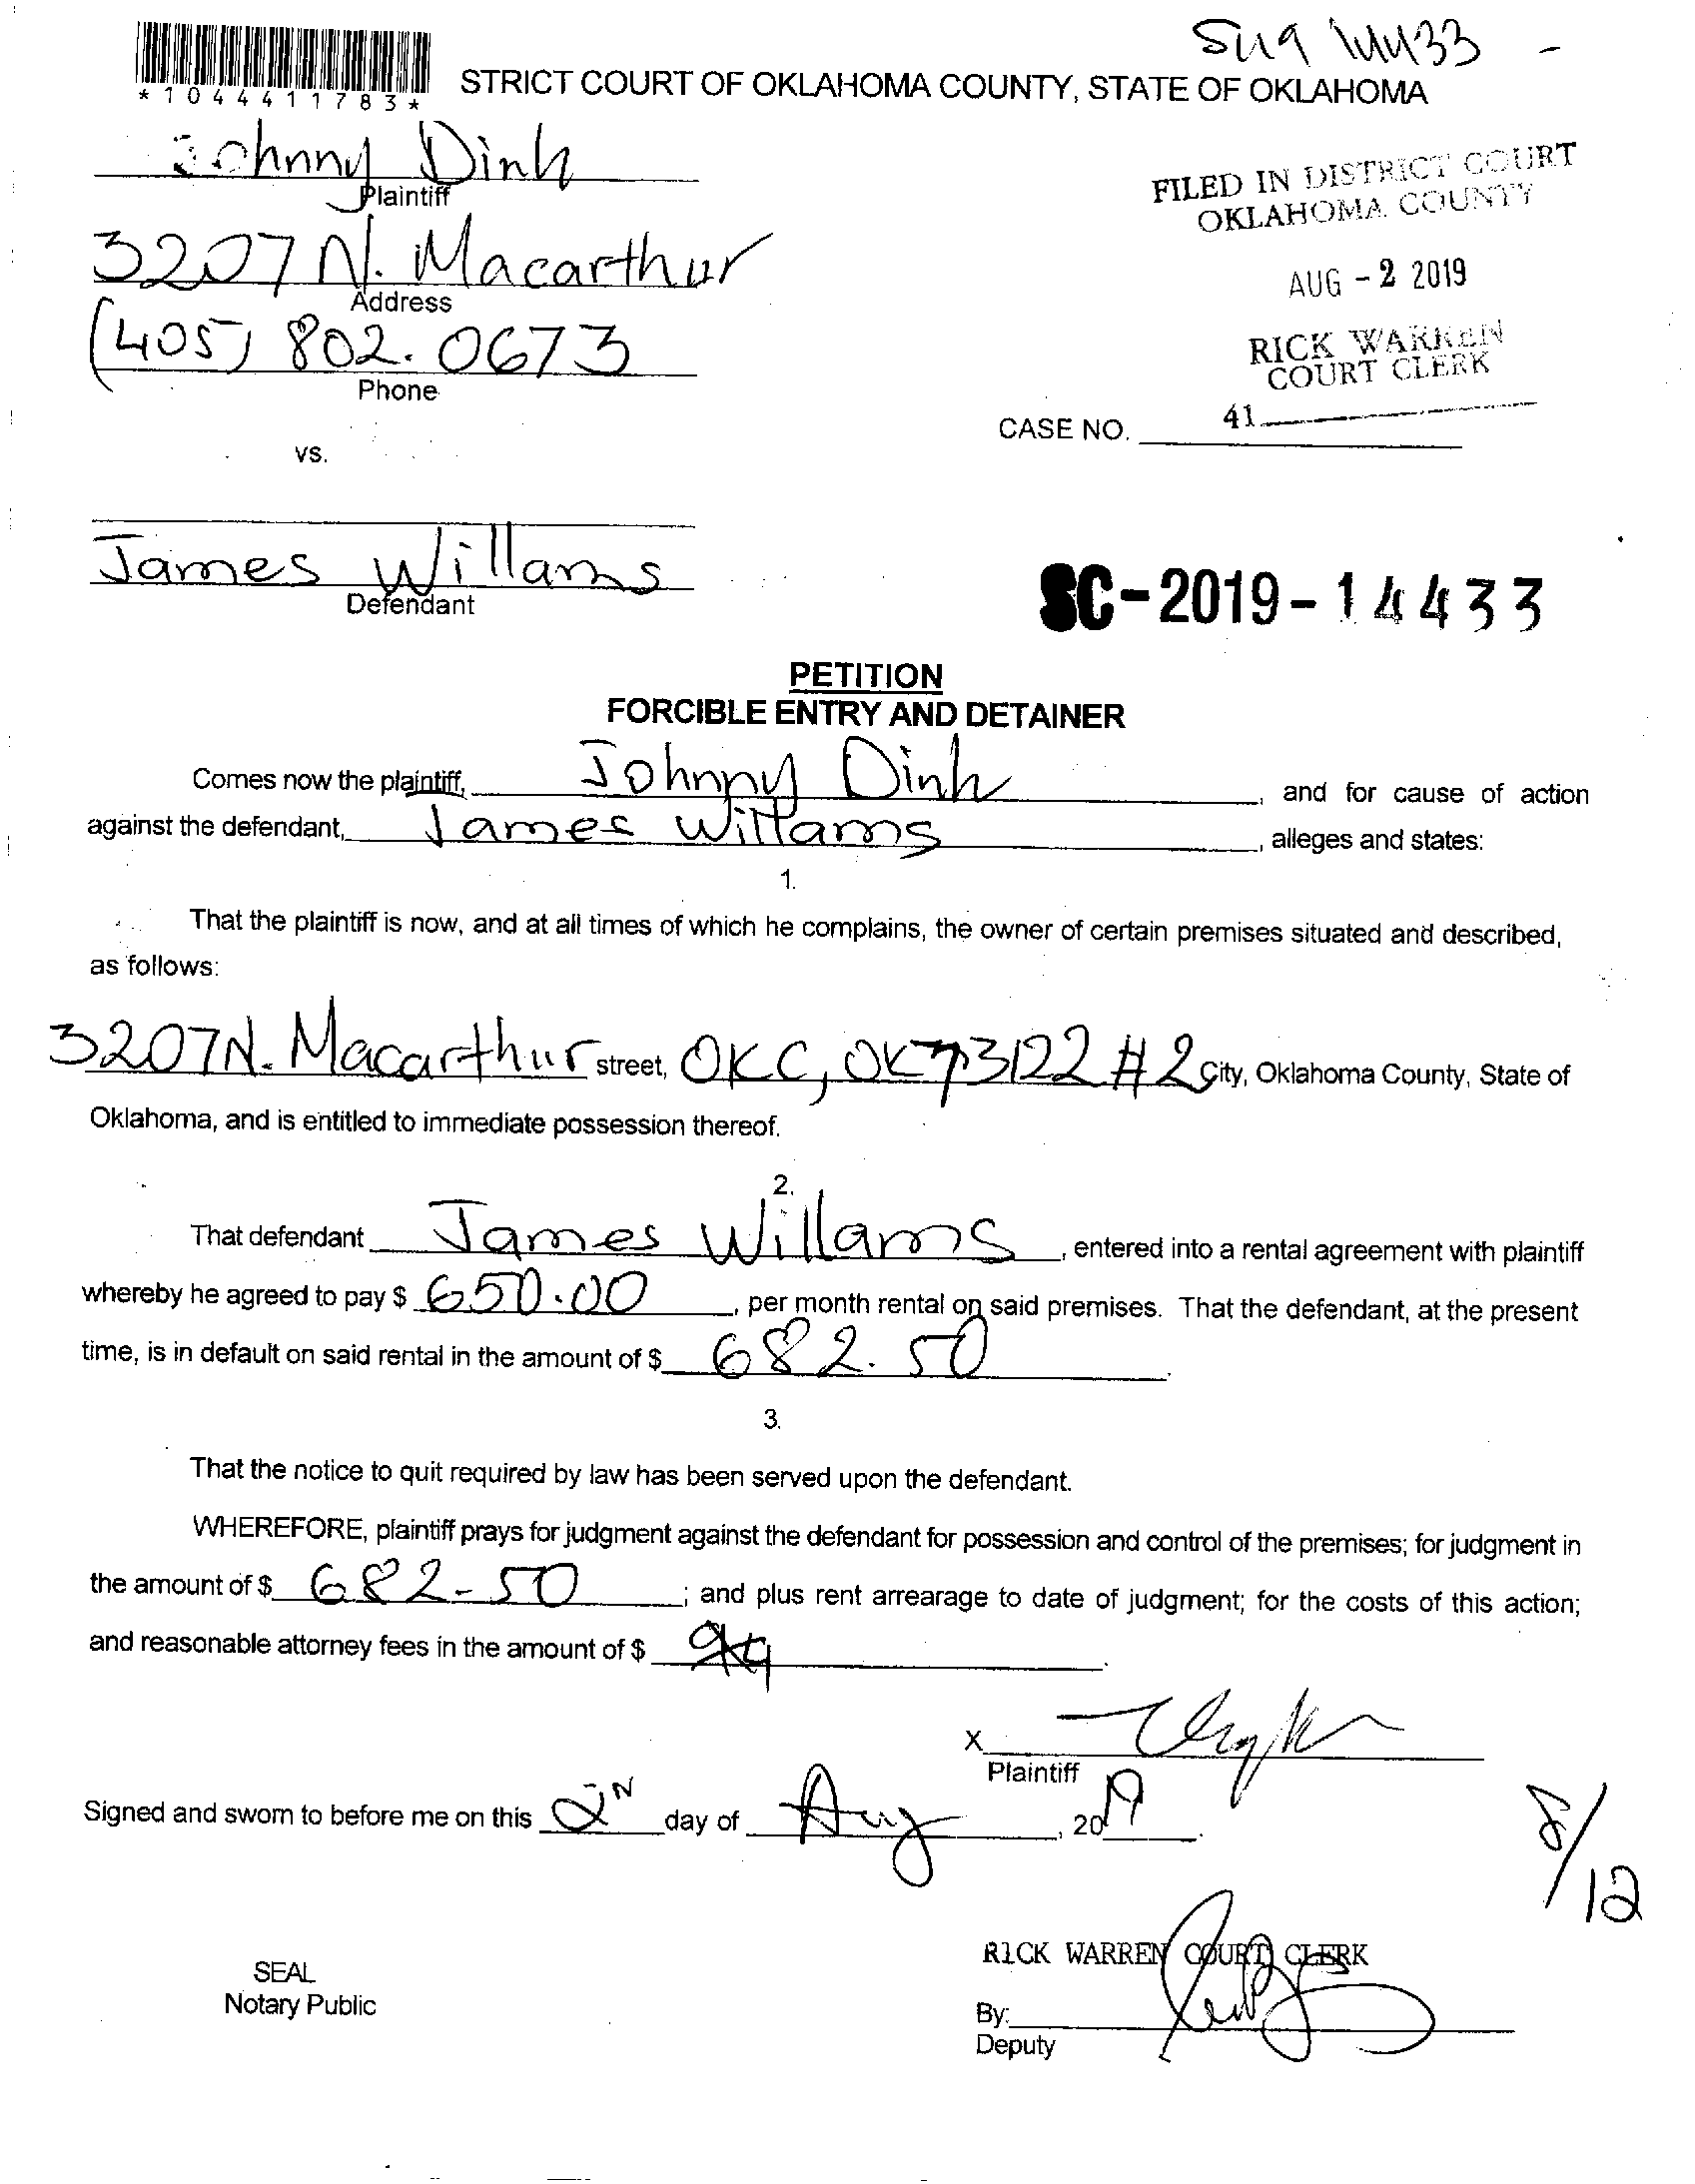 *1044411783*
STRICT COURT OF OKLAHOMA COUNTY, STATE OF OKLAHOMA
Johnny Dinh
Plaintiff
3207 N. Macarthur
Address
(405) 802.0673
Phone
FILED IN DISTRICT COURT
OKLAHOMA COUNTY
AUG - 2 2019
RICK WARREN
COURT CLERK
41
CASE NO.
vs.
James Willams
Defendant
SC-2019-14433
PETITION
FORCIBLE ENTRY AND DETAINER
Comes now the plaintiff, Johnny Dinh, and for cause of action
against the defendant, James Willams, alleges and states:
1.
That the plaintiff is now, and at all times of which he complains, the owner of certain premises situated and described,
as follows:
3207 N. Macarthur street, OKC, OK 73122 #2 City, Oklahoma County, State of
Oklahoma, and is entitled to immediate possession thereof.
2.
That defendant James Willams, entered into a rental agreement with plaintiff
whereby he agreed to pay $ 650.00, per month rental on said premises. That the defendant, at the present
time, is in default on said rental in the amount of $ 682.50.
3.
That the notice to quit required by law has been served upon the defendant.
WHEREFORE, plaintiff prays for judgment against the defendant for possession and control of the premises; for judgment in
the amount of $ 682-50; and plus rent arrearage to date of judgment; for the costs of this action;
and reasonable attorney fees in the amount of $ .
X
Plaintiff
Signed and sworn to before me on this 2N day of Aug, 2019.
8/12
RICK WARREN COURT CLERK
SEAL
Notary Public
By:
Deputy